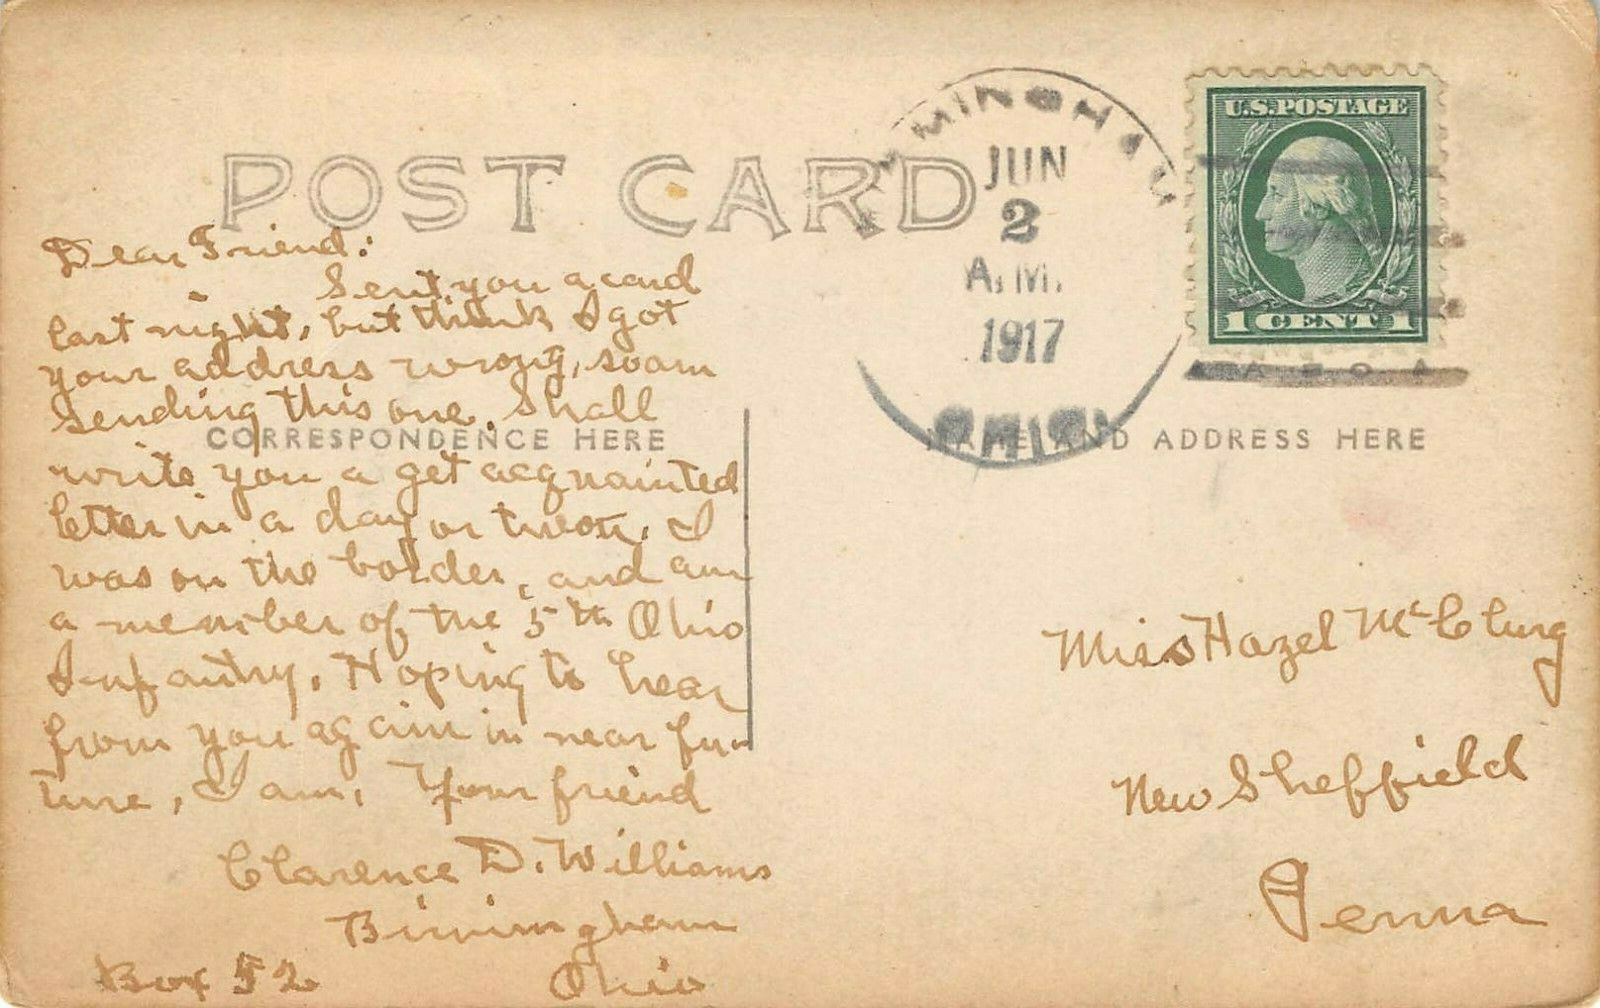 POST CARD
Dear Friend:
Sent you a card
last night, but think I got
your address wrong, so am
sending this one. Shall
CORRESPONDENCE HERE
write you a get acquainted
letter in a day or two. I
was on the border, and am
a member of the 5th Ohio
Infantry. Hoping to hear
from you again in near fu-
ture, I am, Your friend
Clarence D. Williams
Birmingham
Box 52 Ohio
MINGHAM
JUN
2
A.M.
1917
OHIO
U.S. POSTAGE
1 CENT 1
NAME AND ADDRESS HERE
Miss Hazel McClurg
New Sheffield
Penna